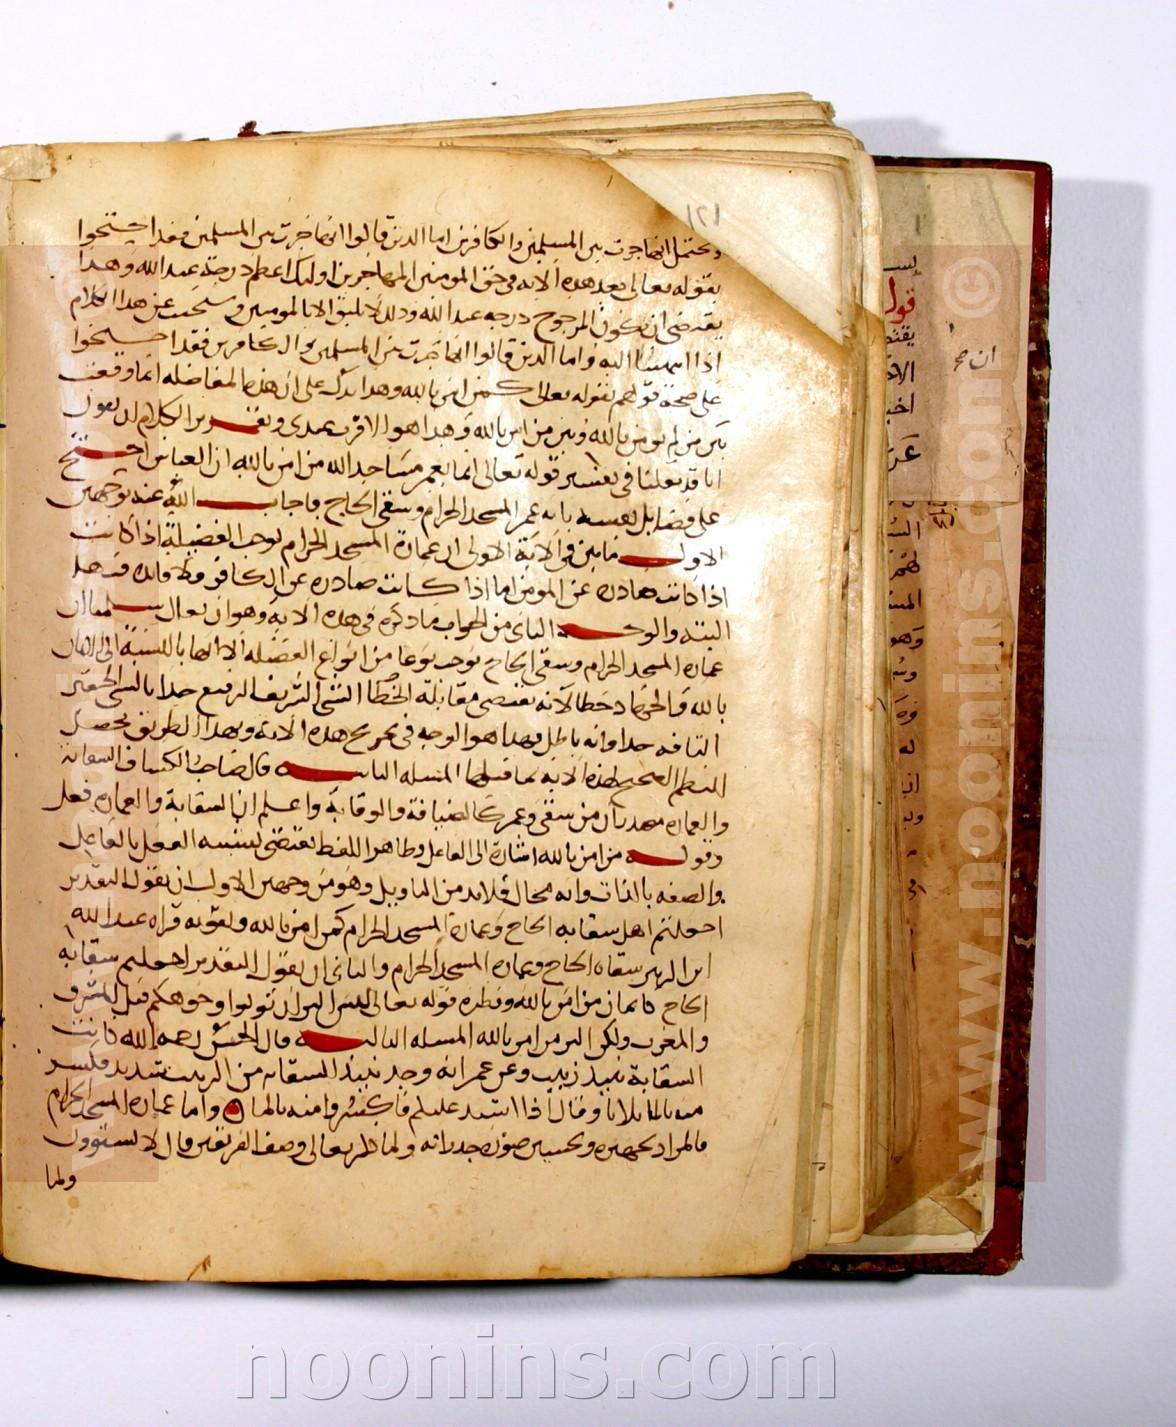 ١٢١
ويحتمل انها جرت بين المسلمين والكافرين اما الذين قالوا انها جرت بين المسلمين فقد احتجوا
بقوله تعالى بعد هذه الاية في حق المومنين المهاجرين اولئك اعظم درجة عند الله وهذا
يقتضي ان يكون للمرجوح درجه عند الله وذلك لا يليق الا بالمومنين وسنجيب عن هذا الكلام
اذا انتهينا اليه واما الذين قالوا انها جرت بين المسلمين والكافرين فقد احتجوا
على صحة قولهم بقوله تعالى كمن امن بالله وهذا يدل على ان هذه المفاضله انما وقعت
بين من لم يومن بالله وبين من امن بالله وهذا هو الاقرب عندي وتقرير الكلام ان يقول
انا قد نقلنا في تفسير قوله تعالى انما يعمر مساجد الله من امن بالله ان العباس احتج
على فضايل نفسه بانه عمر المسجد الحرام وسقى الحاج فاجاب الله عنه بوجهين
الاول ما بين في الاية الاولى ان عمارة المسجد الحرام توجب الفضيلة اذا كانت
اذا كانت صادره عن المومن اما اذا كانت صادره عن الكافر فلا فايده فيها
البته والوجه الثاني من الجواب ما ذكره في هذه الاية وهو ان يقال سلمنا ان
عماره المسجد الحرام وسقي الحاج يوجب نوعا من انواع الفضيله الا انها بالنسبة الى الايمان
بالله والجهاد خطا لانه يقتضي مقابلة الشي الشريف الرفيع جدا بالشي الحقير
التافه جدا وانه باطل فهذا هو الوجه في تخريج هذه الاية وبهذا الطريق يحصل
النظم الصحيح لهذه الاية بما قبلها المسله الثانيه قال صاحب الكشاف السقاية
والعماره مصدران من سقى وعمر كالصيانة والوقاية واعلم ان السقاية والعماره فعل
وقوله من امن بالله اشارة الى الفاعل وظاهر اللفظ يقتضي تشبيه الفعل بالفاعل
والصفه بالذات وانه محال فلا بد من التاويل وهو من وجهين الاول ان يقول التقدير
اجعلتم اهل سقاية الحاج وعمارة المسجد الحرام كمن امن بالله ويقويه قراه عبد الله
ابن الزبير سقاه الحاج وعماره المسجد الحرام والثاني ان يقول التقدير اجعلتم سقاية
الحاج كايمان من امن بالله ونظيره قوله تعالى ليس البر ان تولوا وجوهكم قبل المشرق
والمغرب ولكن البر من امن بالله المسله الثالثه قال الحسن رحمه الله كانت
السقاية بنبيذ زبيب وعن عمر انه وجد نبيذ السقايه من الزبيب شديدا فكسر
منه بالماء ثلاثا وقال اذا اشتد عليكم فاكسروا منه بالماء واما عمارة المسجد الحرام
فالمراد تجهيزه وتحسين صوره جدرانه ولما ذكر تعالى وصف الفريقين قال لا يستوون
ولما
قول
ان صح
www.noonins.com
noonins.com